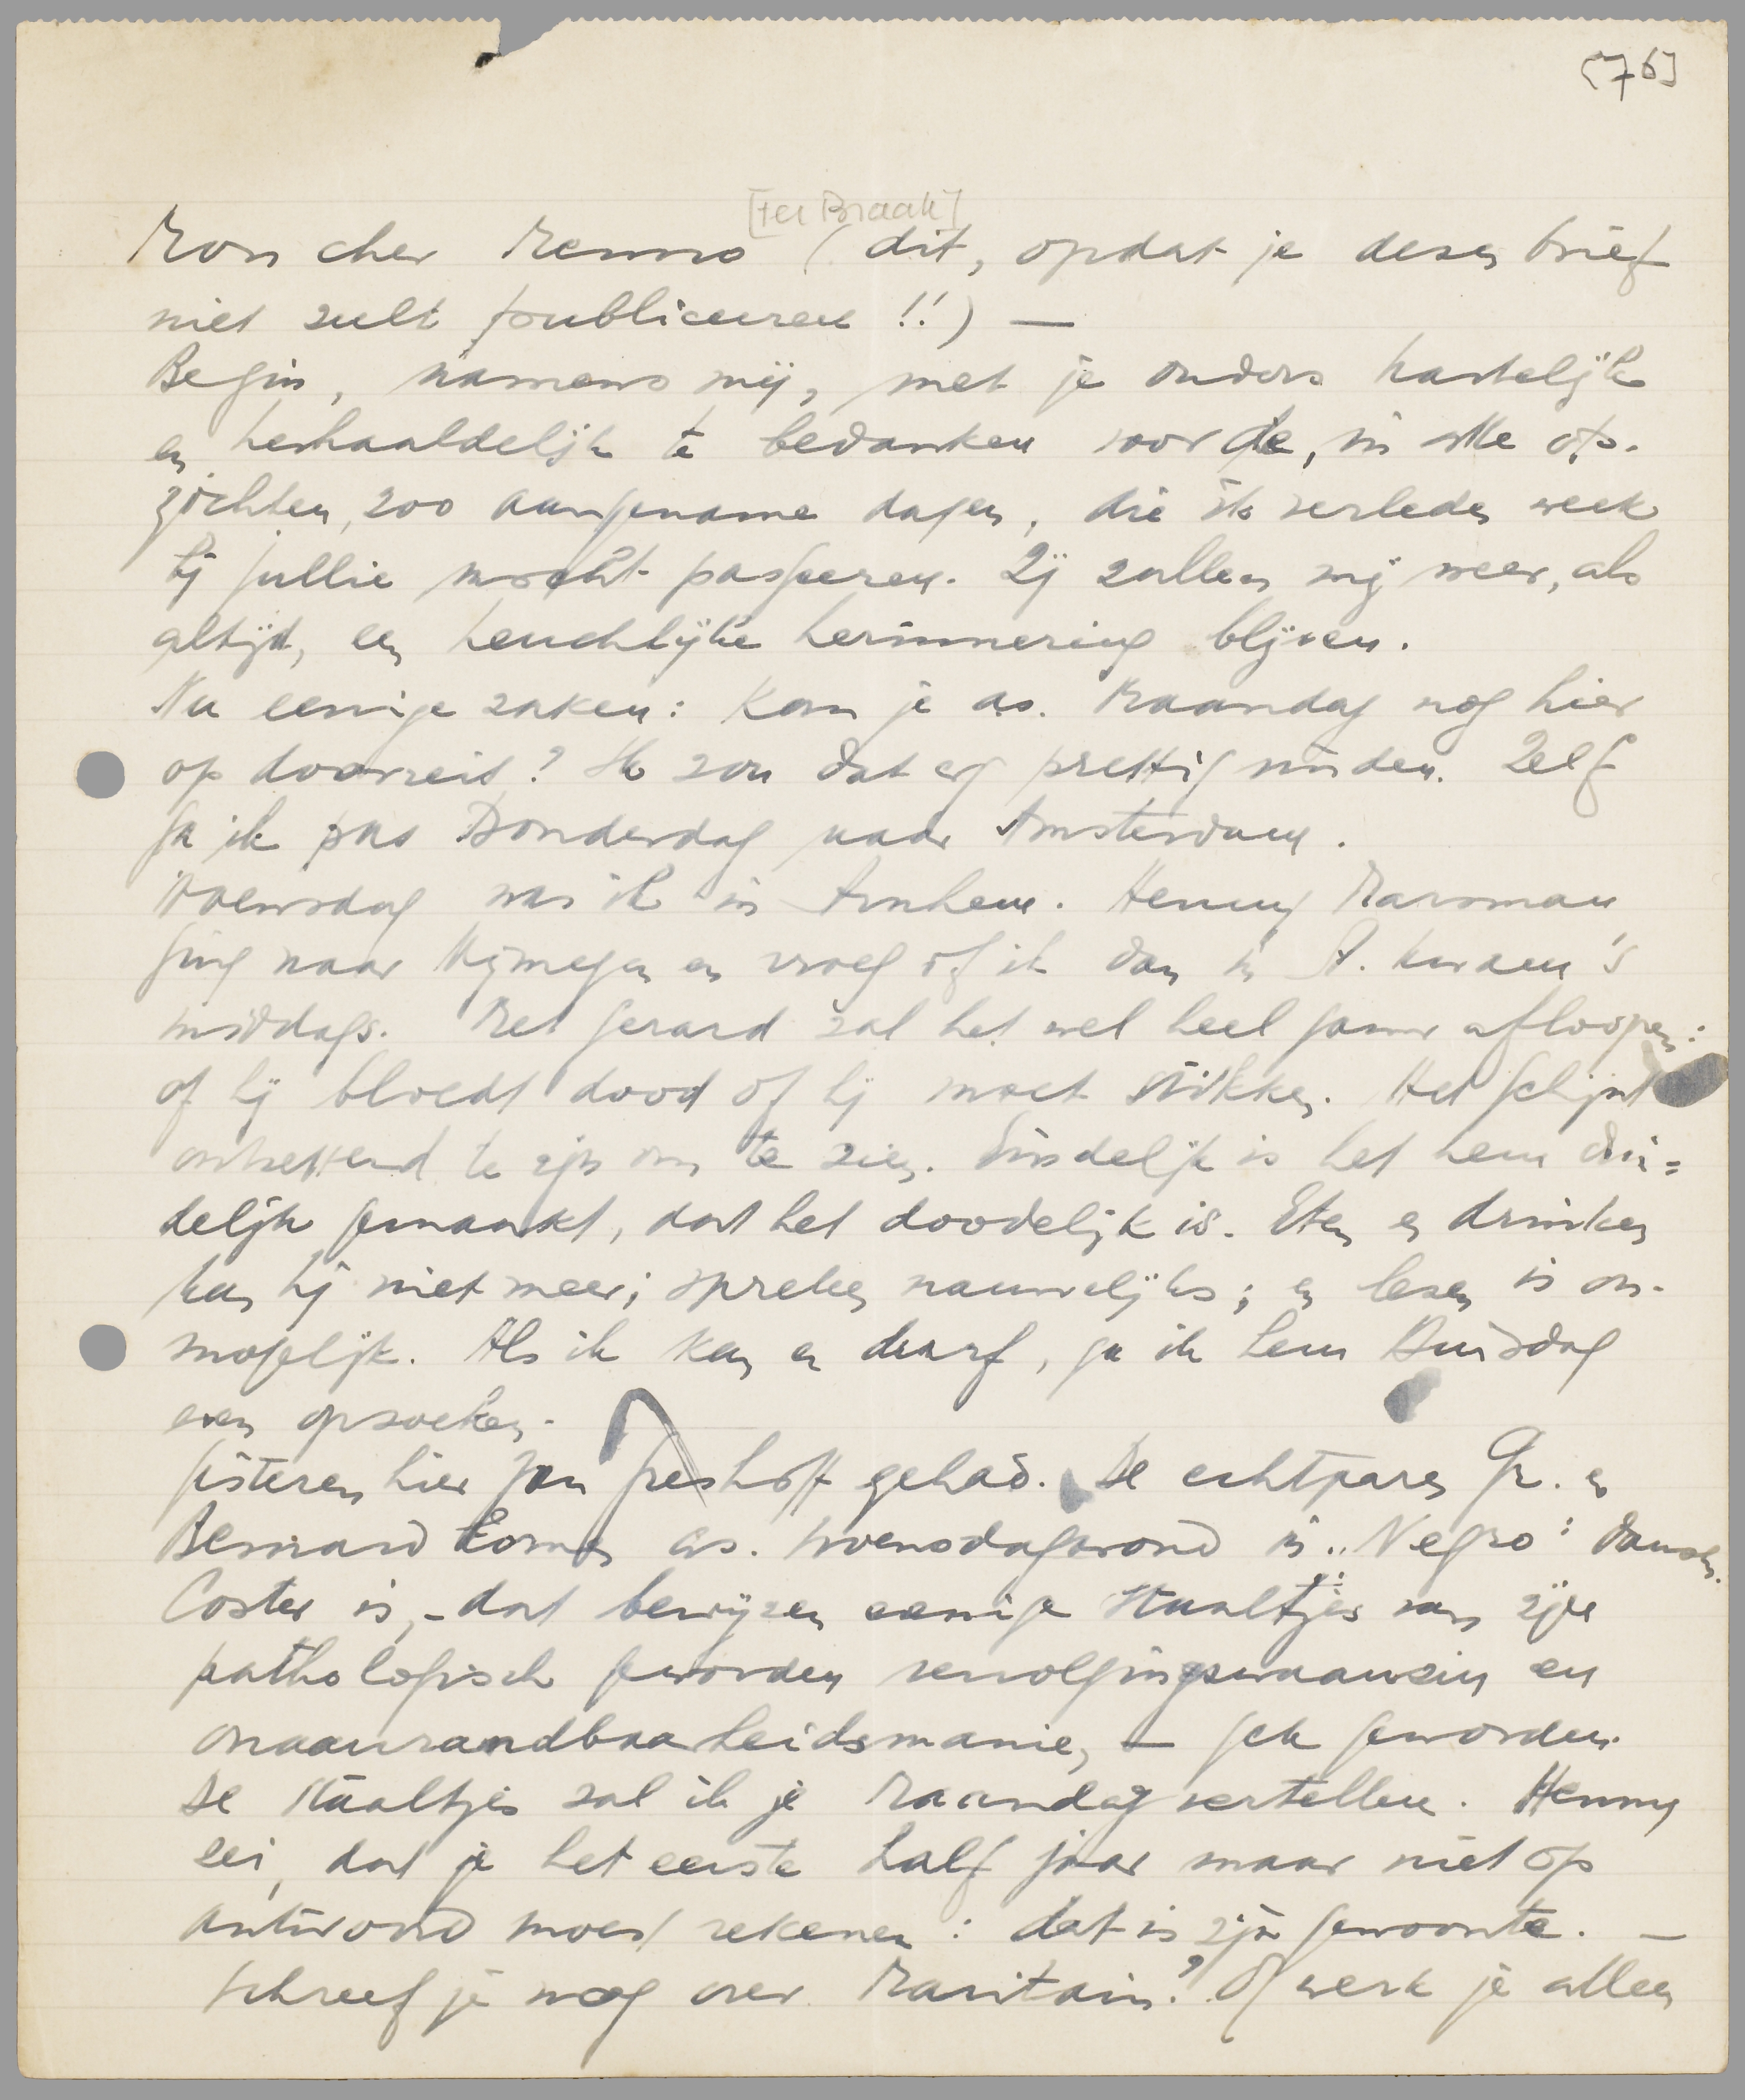 [76]
[ter Braak]
Mon cher Menno (dit, opdat je dezen brief
niet zult publiceeren!!) —
Begin, namens mij, met je ouders hartelijk
en herhaaldelijk te bedanken voor de, in alle op-
zichten, zoo aangename dagen, die ik verleden week
bij jullie mocht passeeren. Zij zullen mij weer, als
altijd, een heuchlijke herinnering blijven.
Nu eenige zaken: Kom je as. Maandag nog hier
op doorreis? Ik zou dat erg prettig vinden. Zelf
ga ik pas Donderdag naar Amsterdam.
Woensdag was ik in Arnhem. Henny Marsman
ging naar Nijmegen en vroeg of ik dan in A. kwam 's
middags. Met Gerard zal het wel heel gauw afloopen:
of hij bloedt dood of hij moet stikken. Het schijnt
ontzettend te zijn om te zien. Eindelijk is het hem dui=
delijk gemaakt, dat het doodelijk is. Eten en drinken
kan hij niet meer; spreken nauwelijks; en lezen is on-
mogelijk. Als ik kan en durf, ga ik hem Dinsdag
even opzoeken.
Gisteren hier Jan Greshoff gehad. De echtparen Gr. en
Bernard komen as. Woensdagavond in „Negro": dansen.
Coster is, – dat bewijzen eenige staaltjes van zijn
pathologisch geworden vervolgingswaanzin en
onaanrandbaarheidsmanie, — gek geworden.
De staaltjes zal ik je Maandag vertellen. Henny
zei, dat je het eerste half jaar maar niet op
antwoord moest rekenen: dat is zijn gewoonte. —
Schreef je nog over Maritain? Of werk je alleen